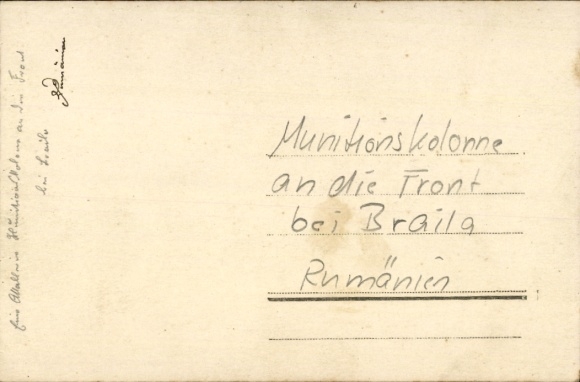 Munitionskolonne
an die Front
bei Braila
Rumänien
Eine Munitionskolonne an die Front
bei Braila
Rumänien